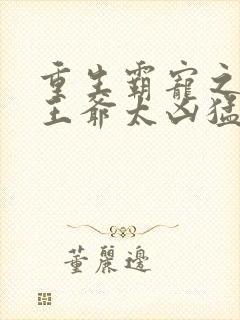 重生霸寵之
王爺太凶猛
董麗邊